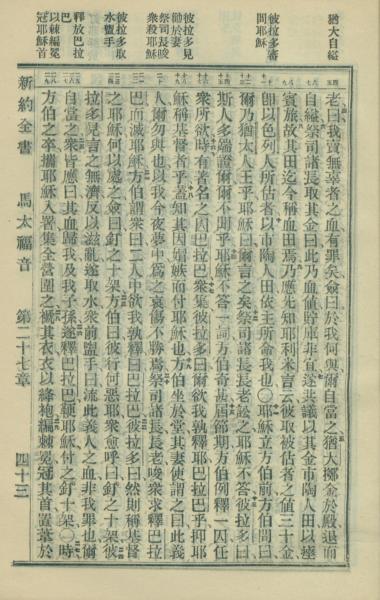 猶大自縊
彼拉多審
問耶穌
彼拉多見
勸於妻
祭司長唆
衆殺耶穌
彼拉多取
水盥手
釋放巴拉
巴
以棘編冕
冠耶穌首
老曰我賣無辜者之血有罪矣僉曰於我何與爾自當之猶大擲金於殿退而
自縊祭司諸長取其金曰此乃血値貯庫非宜遂共議以其金市陶人田以瘞
賓旅故其田迄今稱血田焉乃應先知耶利米言云彼取被估者之値三十金
卽以色列人所估者以市陶人田依主所命我也〇耶穌立方伯前方伯問曰
爾乃猶太人王乎耶穌曰爾言之矣祭司諸長長老訟之耶穌不答彼拉多曰
斯人多端證爾爾不聞乎耶穌不答一詞方伯奇甚屆節期方伯例釋一囚任
衆所欲時有著名之囚巴拉巴衆集彼拉多曰爾欲我孰釋耶巴拉巴乎抑耶
穌稱基督者乎蓋知其因媢嫉而付耶穌也方伯坐於堂其妻使謂之曰此義
人爾勿與也以我今夜夢中爲之衷傷不勝焉祭司諸長長老唆衆求釋巴拉
巴而滅耶穌方伯謂衆曰二人中欲我孰釋曰巴拉巴彼拉多曰然則稱基督
之耶穌何以處之僉曰釘之十架方伯曰彼行何惡耶衆愈呼曰釘之十架彼
拉多見言之無濟反以滋亂遂取水衆前盥手曰流此義人之血非我罪也爾
自當之衆皆應曰其血歸我及我子孫遂釋巴拉巴鞭耶穌付之釘十架〇時
方伯之卒攜耶穌入署集全營圍之褫其衣衣以絳袍編棘冕冠其首置葦於
新約全書 馬太福音 第二十七章 四十三